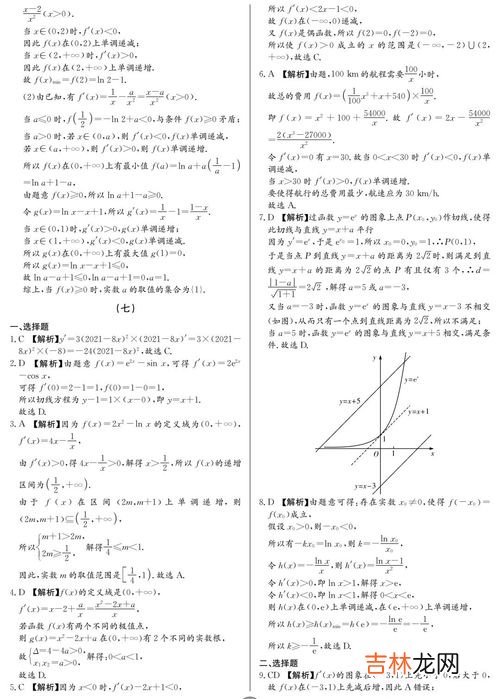 x-2/x²(x>0).
当 x∈(0,2)时,f′(x)<0,
因此 f(x)在(0,2)上单调递减;
当 x∈(2,+∞)时,f′(x)>0,
因此 f(x)在(2,+∞)上单调递增.
故 f(x)min=f(2)=ln 2-1.
(2)由已知,有 f′(x)=1/x-a/x²=x-a/x²(x>0).
当 a≤0 时,f(1/2)=-ln 2+a<0,与条件 f(x)≥0 矛盾;
当 a>0 时,若 x∈(0,a),则 f′(x)<0,f(x)单调递减,
若 x∈(a,+∞),则 f′(x)>0,则 f(x)单调递增.
所以 f(x)在(0,+∞)上有最小值 f(a)=ln a+a(1/a-1)
=ln a+1-a,
由题意 f(x)≥0,所以 ln a+1-a≥0.
令 g(x)=ln x-x+1,所以 g′(x)=1/x-1=1-x/x.
当 x∈(0,1)时,g′(x)>0,g(x)单调递增;
当 x∈(1,+∞),g′(x)<0,g(x)单调递减.
所以 g(x)在(0,+∞)上有最大值 g(1)=0,
所以 g(x)=ln x-x+1≤0,
故 ln a-a+1≤0,ln a-a+1=0,a=1.
综上,当 f(x)≥0 时,实数 a 的取值的集合为{1}.
(七)
一、选择题
1.C 【解析】y′=3(2021-8x)²×(2021-8x)′=3×(2021-
8x)²×(-8)=-24(2021-8x)²,故选 C.
2.D 【解析】由题意 f(x)=e²ˣ-sin x,可得 f′(x)=2e²ˣ
-cos x,
可得 f′(0)=2-1=1,f(0)=1-0=1,
所以切线方程为 y-1=1×(x-0),即 y=x+1.
故选 D.
3.A 【解析】因为 f(x)=2x²-ln x 的定义域为(0,+∞),
f′(x)=4x-1/x,
由 f′(x)>0,得 4x-1/x>0,解得 x>1/2,所以 f(x)的递增
区间为(1/2,+∞),
由于 f(x)在区间(2m,m+1)上单调递增,则
(2m,m+1)⊆(1/2,+∞),
所以{m+1>2m, 2m≥1/2, 解得1/4≤m<1.
因此,实数 m 的取值范围是[1/4,1).故选 A.
4.D 【解析】f(x)的定义域是(0,+∞),
f′(x)=x-2+a/x=x²-2x+a/x,
若函数 f(x)有两个不同的极值点,
则 g(x)=x²-2x+a 在(0,+∞)有 2 个不同的实数根,
故{Δ=4-4a>0, x₁x₂=a>0, 解得:0<a<1,
故选 D.
5.C 【解析】因为 x<0 时,f′(x)-2x+1<0,
所以 f′(x)<2x-1<0,
故 f(x)在(-∞,0)递减,
又 f(x)是偶函数,所以 f(2)=0,f(-2)=0,
所以使 f(x)>0 成立的 x 的范围是(-∞,-2)∪(2,
+∞),故选 C.
6.A 【解析】由题,100 km 的航程需要100/x小时,
故总的费用 f(x)=(1/100x²+x+540)×100/x.
即 f(x)=x²+100+54000/x. 故 f′(x)=2x-54000/x²
=2(x³-27000)/x².
令 f′(x)=0 有 x=30.故当 0<x<30 时 f′(x)<0,f(x)单
调递减,
当 x>30 时 f′(x)>0,f(x)单调递增.
要使得航行的总费用最少,航速应为 30 km/h.
故选 A.
7.D 【解析】过函数 y=eˣ 的图象上点 P(x₀,y₀)作切线,使得
此切线与直线 y=x+a 平行
因为 y′=eˣ,于是 eˣ⁰=1,所以 x₀=0,y₀=1,∴P(0,1),
于是当点 P 到直线 y=x+a 的距离为 2√2时,则满足到直
线 y=x+a 的距离为 2√2的点 P 有且仅有 3 个,∴d=
|1-a|/√1+1=2√2,解得 a=5 或 a=-3,
又当 a=-3 时,函数 y=eˣ 的图象与直线 y=x-3 不相交
(如图),从而只有一个点到直线距离为 2√2,所以不满足;
当 a=5 时,函数 y=eˣ 的图象与直线 y=x+5 相交,满足条
件.故选 D.
y
y=eˣ
y=x+5
y=x+1
1
O
1
x
y=x-3
8.D 【解析】由题意可得:存在实数 x₀≠0,使得 f(-x₀)=
f(x₀)成立,
假设 x₀>0,则-x₀<0,
所以有-kx₀=ln x₀,则 k=-ln x₀/x₀,
令 h(x)=-ln x/x,则 h′(x)=ln x-1/x²,
令 h′(x)>0,即 ln x>1,解得 x>e,
令 h′(x)<0,即 ln x<1,解得 0<x<e,
则 h(x)在(0,e)上单调递减,在(e,+∞)上单调递增,
所以 h(x)≥h(x)min=h(e)=-ln e/e=-1/e,
所以 k≥-1/e,故选 D.
二、选择题
9.CD 【解析】f′(x)的图象在(-3,1)上先
大于 0,
故 f(x)在(-3,1)上先减后增,因此 A 错误;
吉林龙网